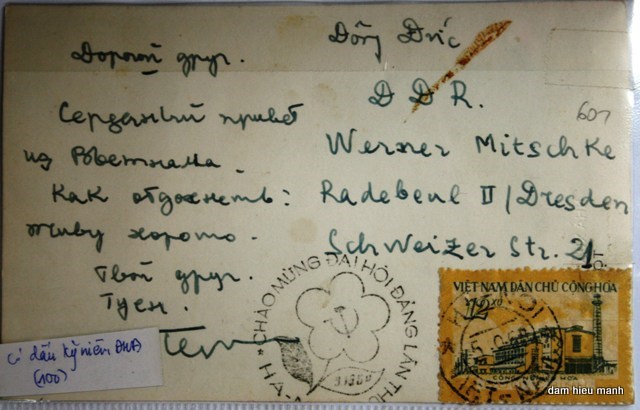 Дорогой друг.
Сердечный привет
из Вьетнама.
Как отдохнеть:
живу хорошо.
Твой друг.
Туен.
Đông Đức
DDR.
607
Werner Mitschke
Radebeul II / Dresden
Schweizer Str. 21
"CHÀO MỪNG ĐẠI HỘI ĐẢNG LẦN THỨ
HÀ-
9.1960
VIỆT NAM DÂN CHỦ CỘNG HÒA
12 xu
HANOI
VIET-NAM
Có dấu kỷ niệm ĐHĐ
(100)
dam hieu manh